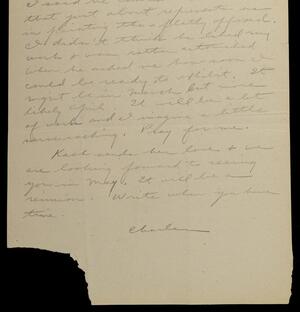 I said
that just about represents us
in painting
I didn't think he liked my
work & was rather astonished
when he asked me how soon I
could be ready to exhibit. It
might be in March but more
likely April. It will be a lot
of work and I imagine a little
nerve-racking. Pray for me.
Kash sends her love & we
are looking forward to seeing
you in May. It will be a
reunion. Write when you have
time.
Charles